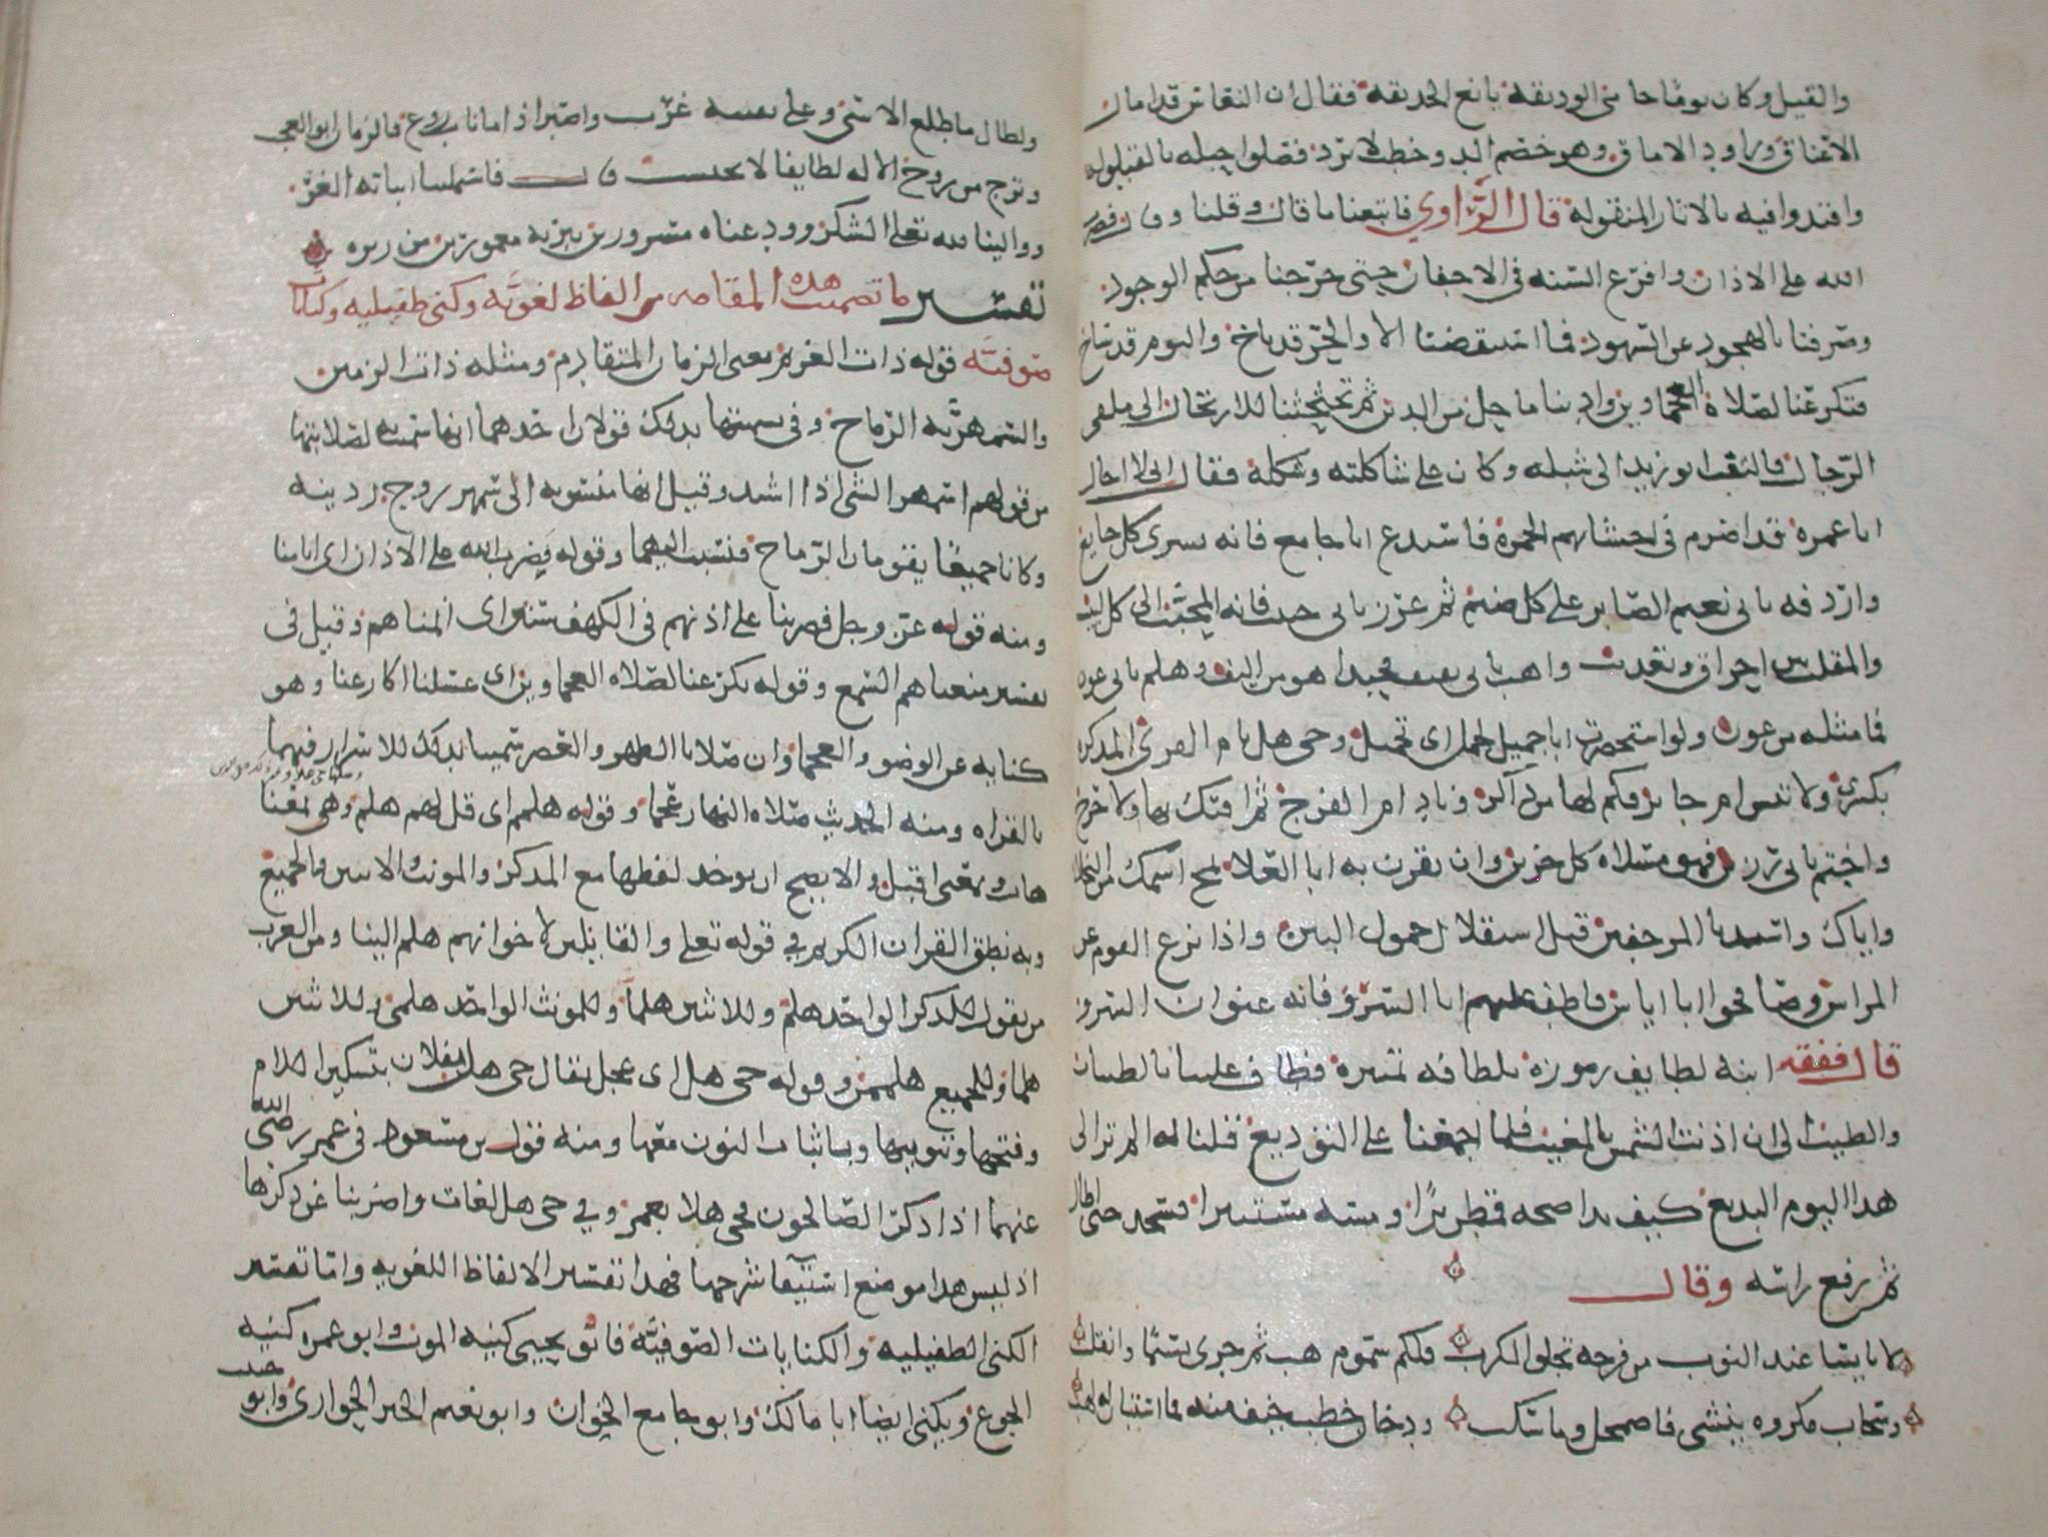 والقيل وكان يومًا حامى الوديقة يانع الحديقة فقال ان النعاس قد امال
الاعناق وراود الاماق وهو خصم الد وخطب لا يرد فصلوا حبله بالقيلوله
واقتدوا فيه بالاثار المنقولة قال الراوي فاتبعنا ما قال وقلنا وقال فضرب
الله على الاذان وافرغ السنه في الاجفان حتى خرجنا من حكم الوجود
وصرفنا بالهجود عن السجود فما استيقظنا الا والحر قد باخ واليوم قد شاخ
فتكرعنا لصلاة العجماوين وادينا ما حل من الدين ثم تحثحثنا للارتحال الى ملقى
الرحال فالتفت ابو زيد الى شبله وكان على شاكلته وشكله فقال اني لا اخال
ابا عمرة قد اضرم في احشائهم الجمرة فاستدع ابا جامع فانه بشرى كل جايع
واردفه بابي نعيم الصابر على كل ضيم ثم عزز بابي حبيب فانه المحبب الى كل لبيب
والمقلب بين احراق وتعذيب واهب بابي ثقيف فحبذا هو من اليف وهلم بابي عون
فما مثله من عون ولو استحضرت ابا جميل لجمل اي تجميل وحي هل بام القرى المذكرة
بكسرى ولا تنس ام جابر فكم لها من ذاكر وناد ام الفرج ثم افتك بها ولا حرج
واختم بابي رزين فهو مسلاة كل حزين وان تقرن به ابا العلا تمح اسمك من البخلا
واياك واستدنا المرجفين قبل استقلال حمول البين واذا نزع القوم عن
المراس وصافحوا ابا اياس فاطف عليهم ابا السرو فانه عنوان السرو
قال ففقه ابنه لطايف رموزه بلطافه تميزه فطاف علينا بالطيبات
والطيب الى ان اذنت الشمس بالمغيب فلما اجمعنا على التوديع قلنا له الم تر الى
هذا اليوم البديع كيف بدا صبحه قمطريرًا ومسه مستنيرا فسجد حتى اطال
ثم رفع راسه وقال
لا تايسا عند النوب من فرجه تجلو الكرب فلكم سموم هب ثم جرى نسيمًا وانقلب
وسحاب مكروه ينشى فاضمحل وما سكب ودخان خطب خيف منه فما استبان له لهب
ولطال ما طلع الاسى وعلى نفسه غرب واصبر اذا ما ناب روع فالزمان ابو العجب
وترج من روح الاله لطايفا لا تحتسب قال فاستملينا ابياته الغر
ووالينا لله تعلى الشكر وودعناه مسرورين ببريه مغمورين من بره
تفسير ما تضمنت هذه المقامه من الفاظ لغويه وكنى طفيليه وكنايات
صوفيه قوله ذات العويم يعنى الزمان المتقادم ومثله ذات الزمين
والسمهريه الرماح وفي تسميتها بذلك قولان احدهما انها سميت لصلابتها
من قولهم اسمهر الشى اذا اشتد وقيل انها منسوبه الى سمهر زوج ردينه
وكانا جميعًا يقومان الرماح فنسبت اليهما وقوله فضرب الله على الاذان اى انامنا
ومنه قوله عز وجل فضربنا على اذنهم في الكهف سنين اى انمناهم وقيل في
تفسير منعناهم السمع وقوله تكرعنا لصلاه العجماوين اى غسلنا اكارعنا وهو
كنايه عن الوضو والعجماوان صلاتا الظهر والعصر سميتا بذلك للاسرار فيهما
بالقراه ومنه الحديث صلاه النهار عجما وقوله هلمم اى قل لهم هلم وهى بمعنا
هات وبمعنى اقبل والا يصح ان يوحد لفظها مع المذكر والمونث والاثنين والجميع
وبه نطق القران الكريم في قوله تعلى والقايلين لاخوانهم هلم الينا ومن العرب
من يقول للمذكر الواحد هلم وللاثنين هلما وللمونث الواحد هلمى وللاثنين
هلما وللجميع هلممن وقوله حى هل اى عجل يقال حى هل بفلان بتسكين اللام
وفتحها وتنوينها وباثبات النون معها ومنه قول بن مسعود في عمر رضى الله
عنهما اذا ذكر الصالحون فحى هلا بعمر وفي حى هل لغات واضربنا عن ذكرها
اذ ليس هذا موضع استيفا شرحها فهذا تفسير الالفاظ اللغويه واما تفسير
الكنى الطفيليه والكنايات الصوفيه فابو يحيى كنيه الموت وابو عمره كنيه
الجوع ويكنى ايضا ابا مالك وابو جامع الخوان وابو نعيم الخبز الحوارى وابو حبيب